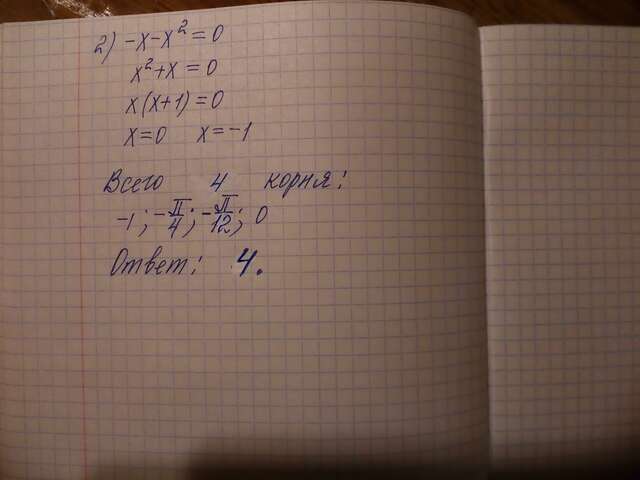 2) -x-x²=0
x²+x=0
x(x+1)=0
x=0 x=-1
Всего 4 корня:
-1; -π/4; -π/12; 0
Ответ: 4.